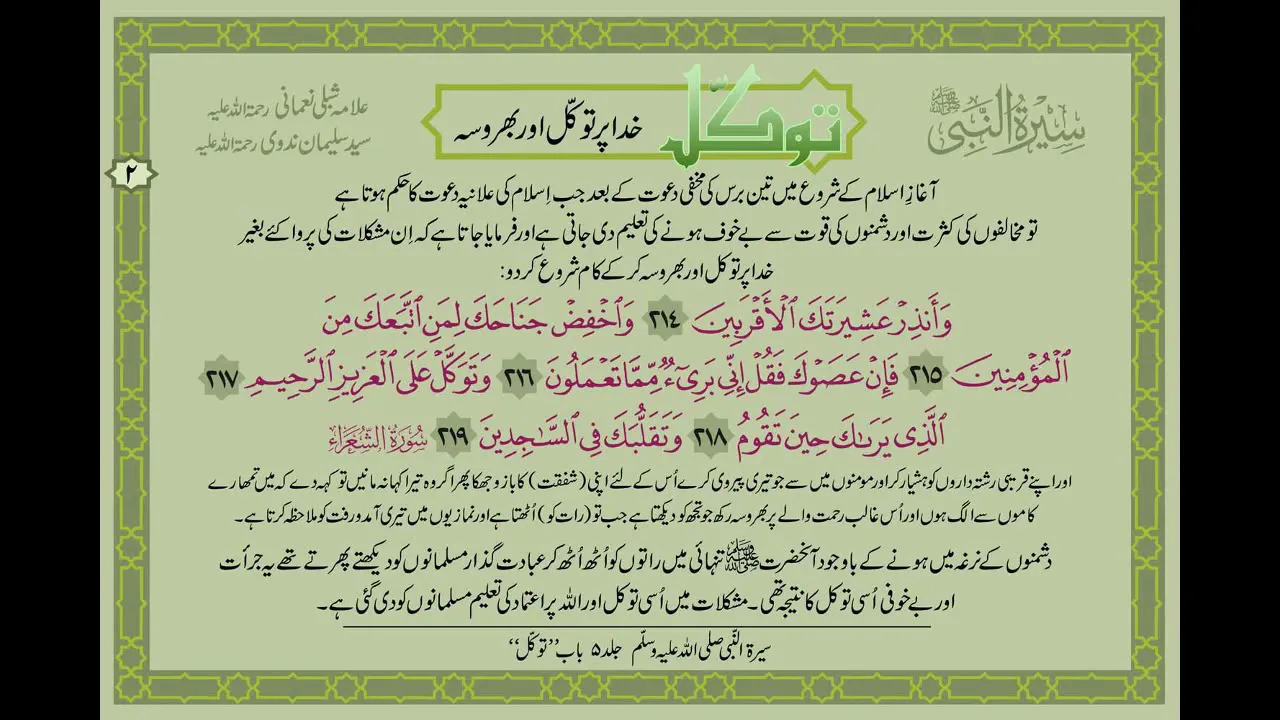 سِيْرَةُ النَّبِى ﷺ
توکّل
خدا پر توکّل اور بھروسہ
علامہ شبلی نعمانی رحمۃ اللہ علیہ
سید سلیمان ندوی رحمۃ اللہ علیہ
۲
آغازِ اسلام کے شروع میں تین برس کی مخفی دعوت کے بعد جب اِسلام کی علانیہ دعوت کا حکم ہوتا ہے
تو مخالفوں کی کثرت اور دشمنوں کی قوت سے بے خوف ہونے کی تعلیم دی جاتی ہے اور فرمایا جاتا ہے کہ اِن مشکلات کی پروا کئے بغیر
خدا پر توکل اور بھروسہ کر کے کام شروع کر دو:
وَأَنذِرْ عَشِيرَتَكَ ٱلْأَقْرَبِينَ ٢١٤ وَٱخْفِضْ جَنَاحَكَ لِمَنِ ٱتَّبَعَكَ مِنَ
ٱلْمُؤْمِنِينَ ٢١٥ فَإِنْ عَصَوْكَ فَقُلْ إِنِّى بَرِىٓءٌ مِّمَّا تَعْمَلُونَ ٢١٦ وَتَوَكَّلْ عَلَى ٱلْعَزِيزِ ٱلرَّحِيمِ ٢١٧
ٱلَّذِى يَرَىٰكَ حِينَ تَقُومُ ٢١٨ وَتَقَلُّبَكَ فِى ٱلسَّـٰجِدِينَ ٢١٩ سُورَةُ الشُّعَرَاء
اور اپنے قریبی رشتہ داروں کو ہشیار کر اور مومنوں میں سے جو تیری پیروی کرے اُس کے لئے اپنی (شفقت) کا بازو جھکا پھر اگر وہ تیرا کہا نہ مانیں تو کہہ دے کہ میں تمھارے
کاموں سے الگ ہوں اور اُس غالب رحمت والے پر بھروسہ رکھ جو تجھ کو دیکھتا ہے جب تو (رات کو) اُٹھتا ہے اور نمازیوں میں تیری آمدورفت کو ملاحظہ کرتا ہے۔
دشمنوں کے نرغہ میں ہونے کے باوجود آنحضرت ﷺ تنہائی میں راتوں کو اُٹھ اُٹھ کر عبادت گذار مسلمانوں کو دیکھتے پھرتے تھے یہ جرأت
اور بے خوفی اُسی توکل کا نتیجہ تھی۔ مشکلات میں اُسی توکل اور اللہ پر اعتماد کی تعلیم مسلمانوں کو دی گئی ہے۔
سیرۃ النّبی صلی اللہ علیہ وسلّم جلد ۵ باب ”توکّل“